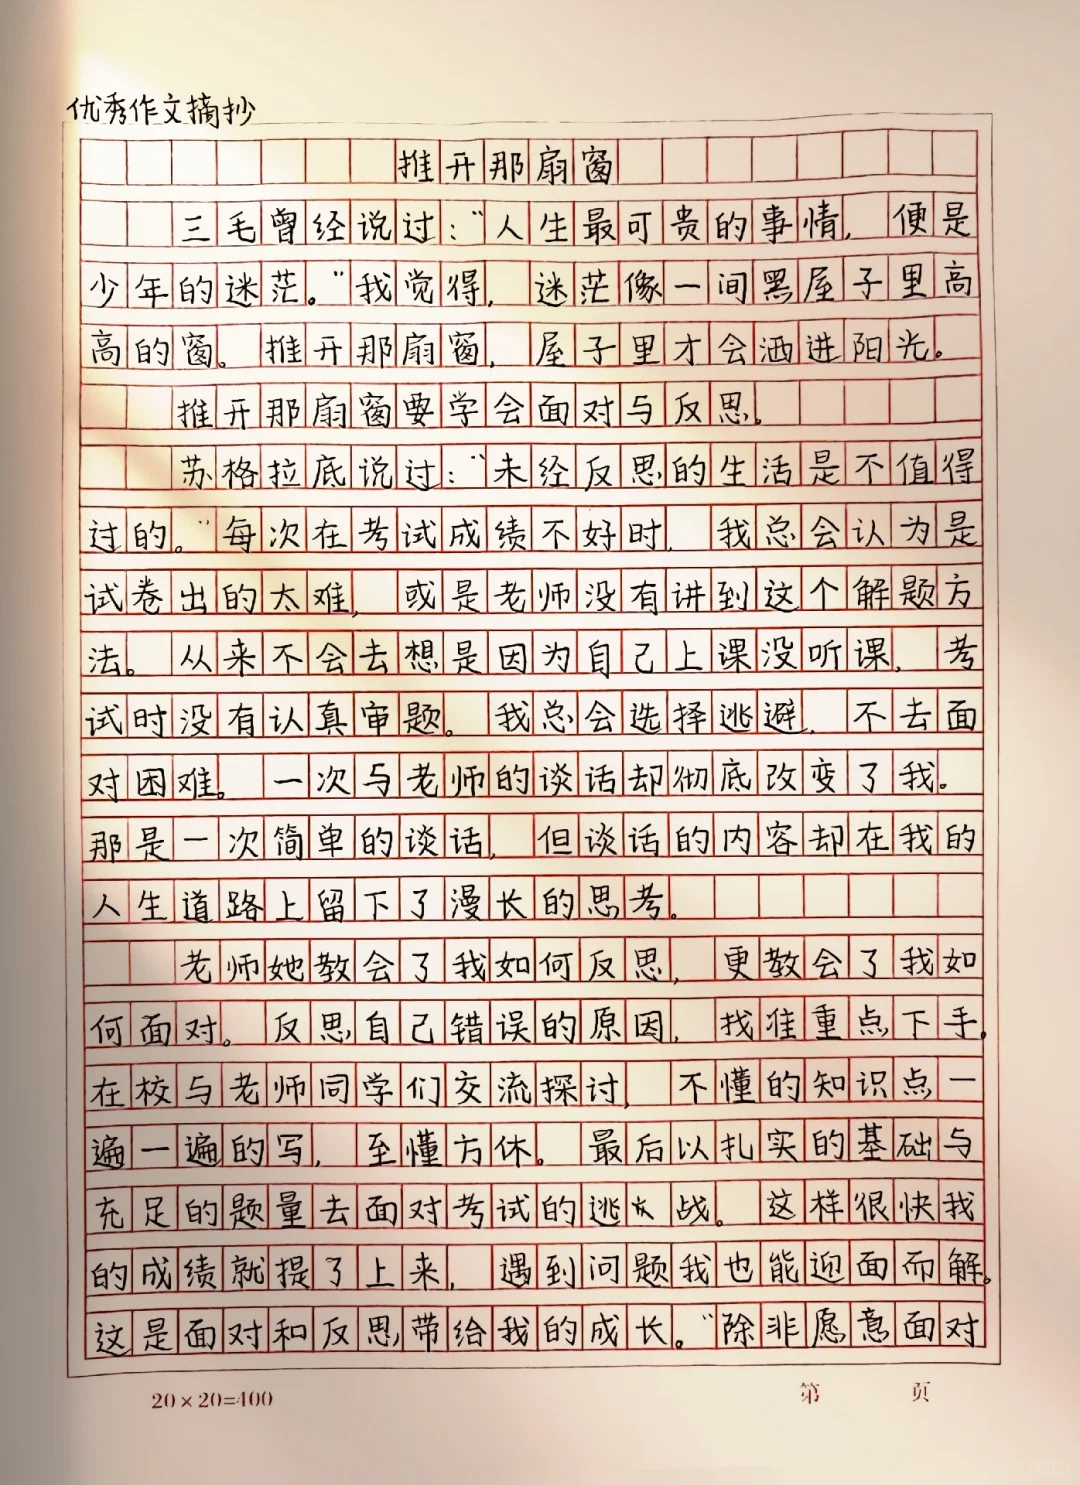 优秀作文摘抄
推开那扇窗
三毛曾经说过："人生最可贵的事情，便是
少年的迷茫。"我觉得，迷茫像一间黑屋子里高
高的窗。推开那扇窗，屋子里才会洒进阳光。
推开那扇窗要学会面对与反思。
苏格拉底说过："未经反思的生活是不值得
过的。"每次在考试成绩不好时，我总会认为是
试卷出的太难，或是老师没有讲到这个解题方
法。从来不会去想是因为自己上课没听课，考
试时没有认真审题。我总会选择逃避，不去面
对困难。一次与老师的谈话却彻底改变了我。
那是一次简单的谈话，但谈话的内容却在我的
人生道路上留下了漫长的思考。
老师她教会了我如何反思，更教会了我如
何面对。反思自己错误的原因，找准重点下手。
在校与老师同学们交流探讨，不懂的知识点一
遍一遍的写，至懂方休。最后以扎实的基础与
充足的题量去面对考试的逃战。这样很快我
的成绩就提了上来，遇到问题我也能迎面而解。
这是面对和反思带给我的成长。"除非愿意面对
20×20=400
第 页